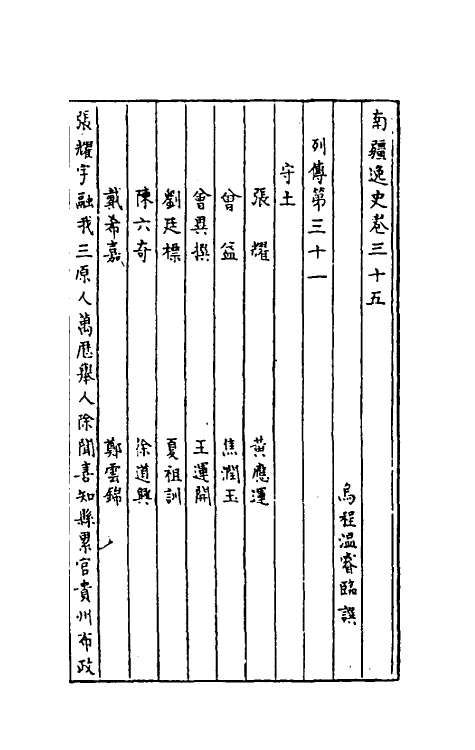 南疆逸史卷三十五
烏程溫睿臨譔
列傳第三十一
守土
張耀　黃應運
曾益　焦潤玉
曾異撰　王運開
劉廷標　夏祖訓
陳六奇　徐道興
戴希嘉　鄭雲錦
張耀字融我三原人萬曆舉人除聞喜知縣累官貴州布政